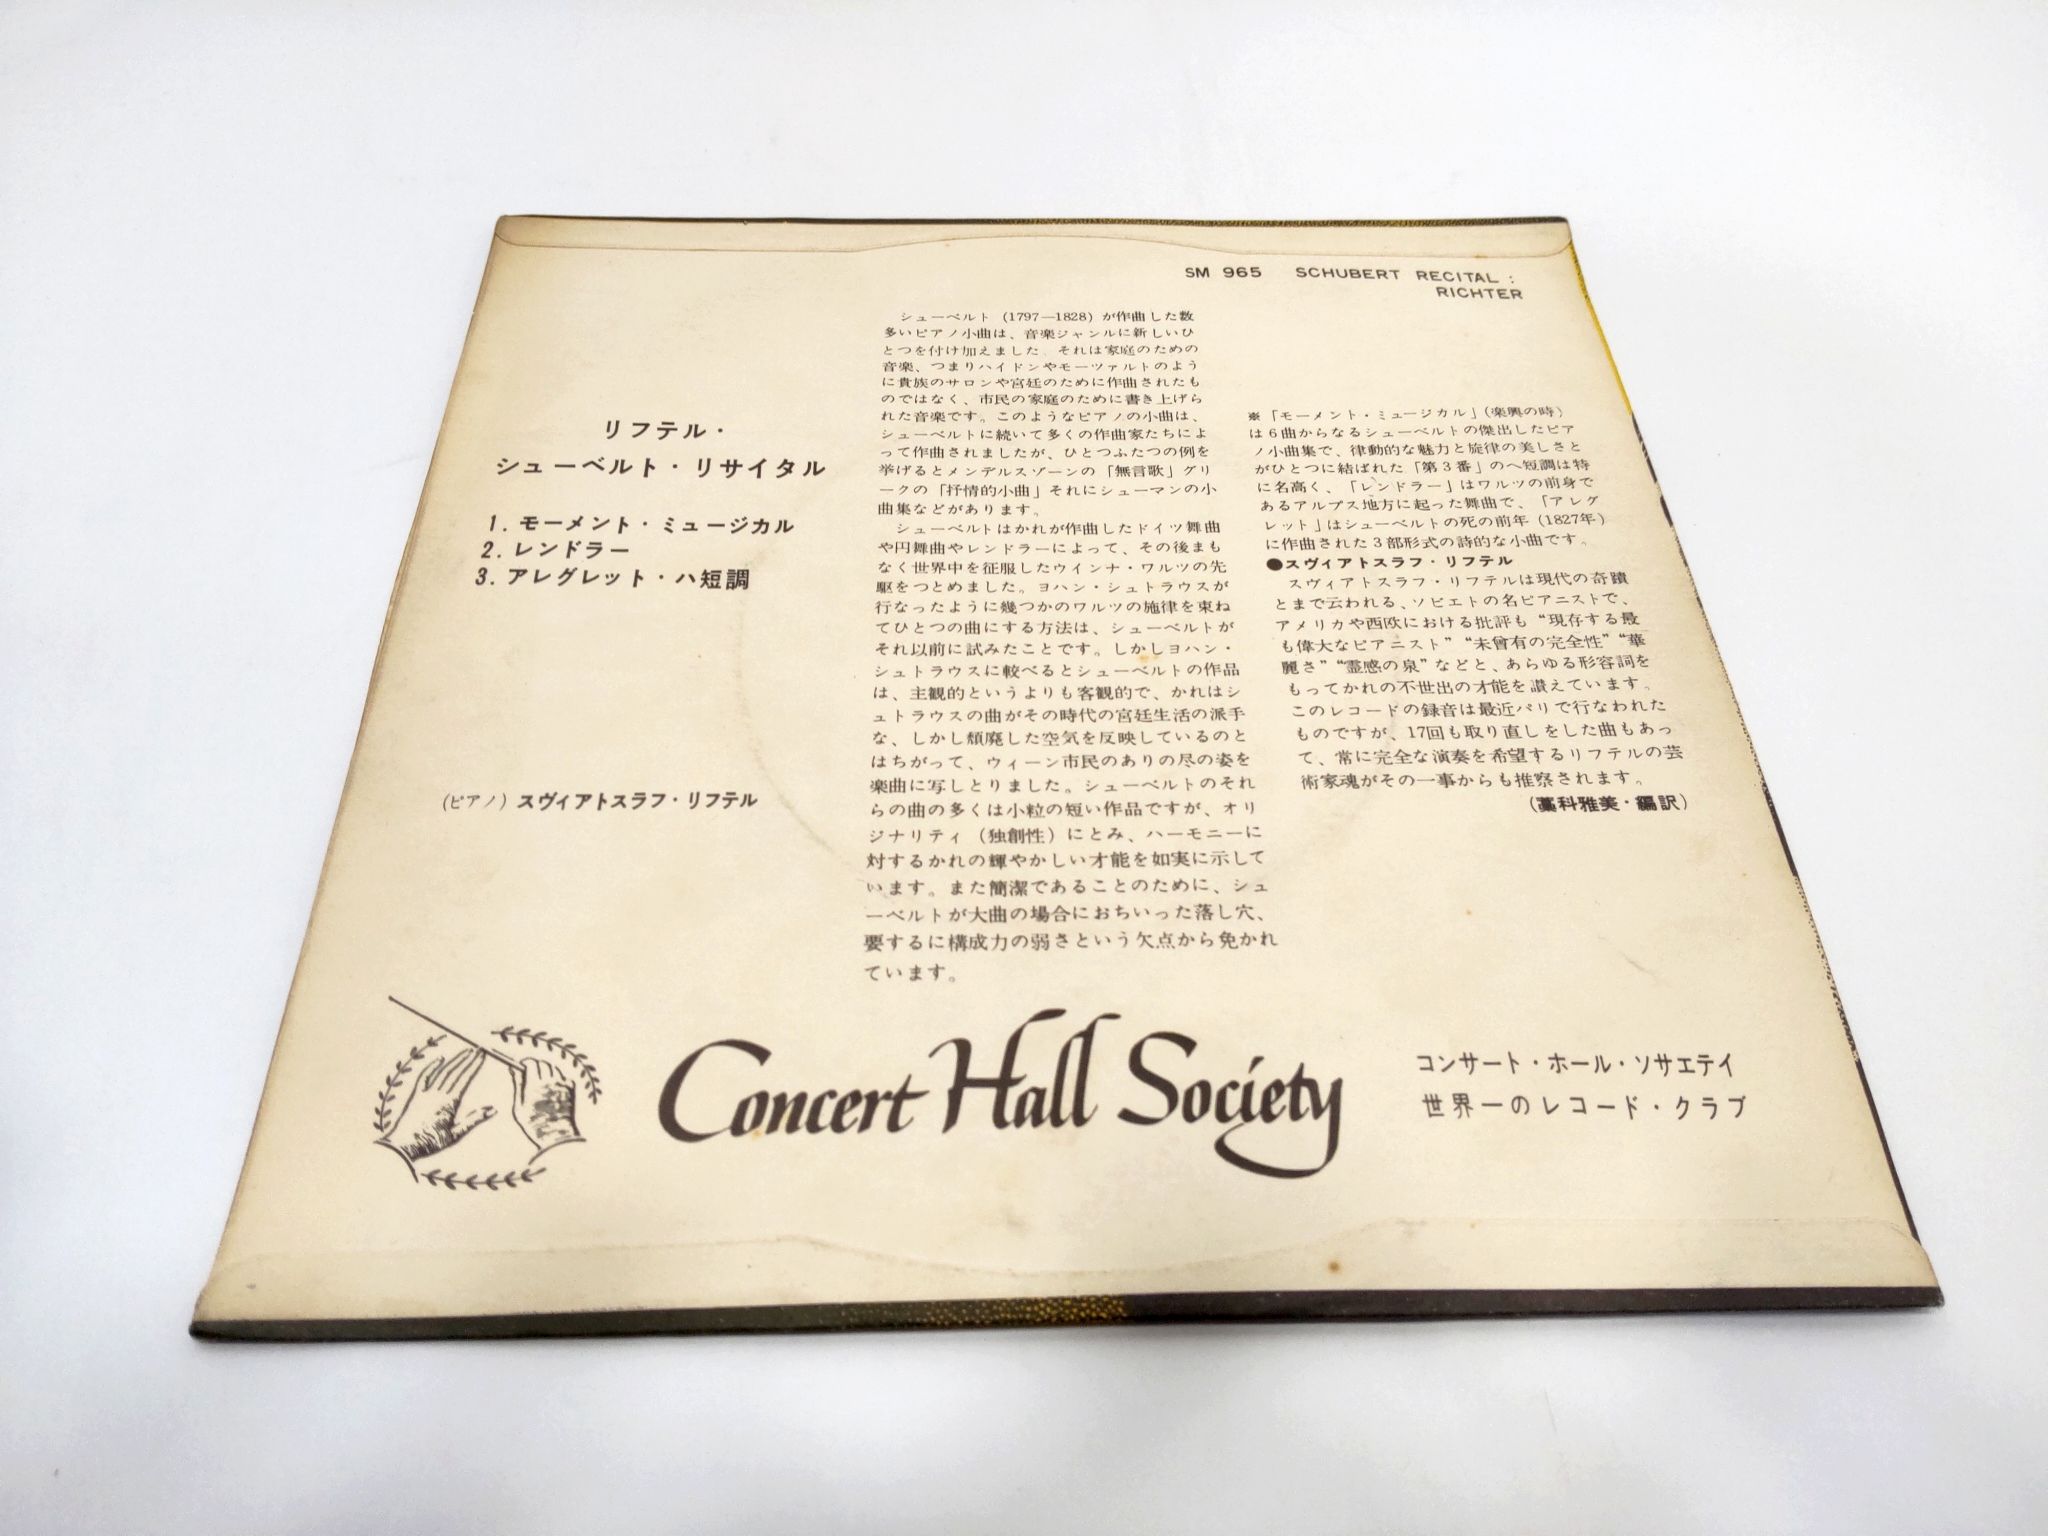 SM 965 SCHUBERT RECITAL :
RICHTER
リフテル・
シューベルト・リサイタル
1. モーメント・ミュージカル
2. レンドラー
3. アレグレット・ハ短調
(ピアノ) スヴィアトスラフ・リフテル
シューベルト (1797—1828) が作曲した数
多いピアノ小曲は、音楽ジャンルに新しいひ
とつを付け加えました。それは家庭のための
音楽、つまりハイドンやモーツァルトのよう
に貴族のサロンや宮廷のために作曲されたも
のではなく、市民の家庭のために書き上げら
れた音楽です。このようなピアノの小曲は、
シューベルトに続いて多くの作曲家たちによ
って作曲されましたが、ひとつふたつの例を
挙げるとメンデルスゾーンの「無言歌」グリ
ークの「抒情的小曲」それにシューマンの小
曲集などがあります。
シューベルトはかれが作曲したドイツ舞曲
や円舞曲やレンドラーによって、その後まも
なく世界中を征服したウインナ・ワルツの先
駆をつとめました。ヨハン・シュトラウスが
行なったように幾つかのワルツの施律を束ね
てひとつの曲にする方法は、シューベルトが
それ以前に試みたことです。しかしヨハン・
シュトラウスに較べるとシューベルトの作品
は、主観的というよりも客観的で、かれはシ
ュトラウスの曲がその時代の宮廷生活の派手
な、しかし頽廃した空気を反映しているのと
はちがって、ウィーン市民のありの尽の姿を
楽曲に写しとりました。シューベルトのそれ
らの曲の多くは小粒の短い作品ですが、オリ
ジナリティ（独創性）にとみ、ハーモニーに
対するかれの輝やかしい才能を如実に示して
います。また簡潔であることのために、シュ
ーベルトが大曲の場合におちいった落し穴、
要するに構成力の弱さという欠点から免かれ
ています。
※「モーメント・ミュージカル」(楽興の時)
は6曲からなるシューベルトの傑出したピア
ノ小曲集で、律動的な魅力と旋律の美しさと
がひとつに結ばれた「第3番」のヘ短調は特
に名高く、「レンドラー」はワルツの前身で
あるアルプス地方に起った舞曲で、「アレグ
レット」はシューベルトの死の前年 (1827年)
に作曲された3部形式の詩的な小曲です。
●スヴィアトスラフ・リフテル
スヴィアトスラフ・リフテルは現代の奇蹟
とまで云われる、ソビエトの名ピアニストで、
アメリカや西欧における批評も“現存する最
も偉大なピアニスト”“未曾有の完全性”“華
麗さ”“霊感の泉”などと、あらゆる形容詞を
もってかれの不世出の才能を讃えています。
このレコードの録音は最近パリで行なわれた
ものですが、17回も取り直しをした曲もあっ
て、常に完全な演奏を希望するリフテルの芸
術家魂がその一事からも推察されます。
(藁科雅美・編訳)
Concert Hall Society
コンサート・ホール・ソサエテイ
世界一のレコード・クラブ